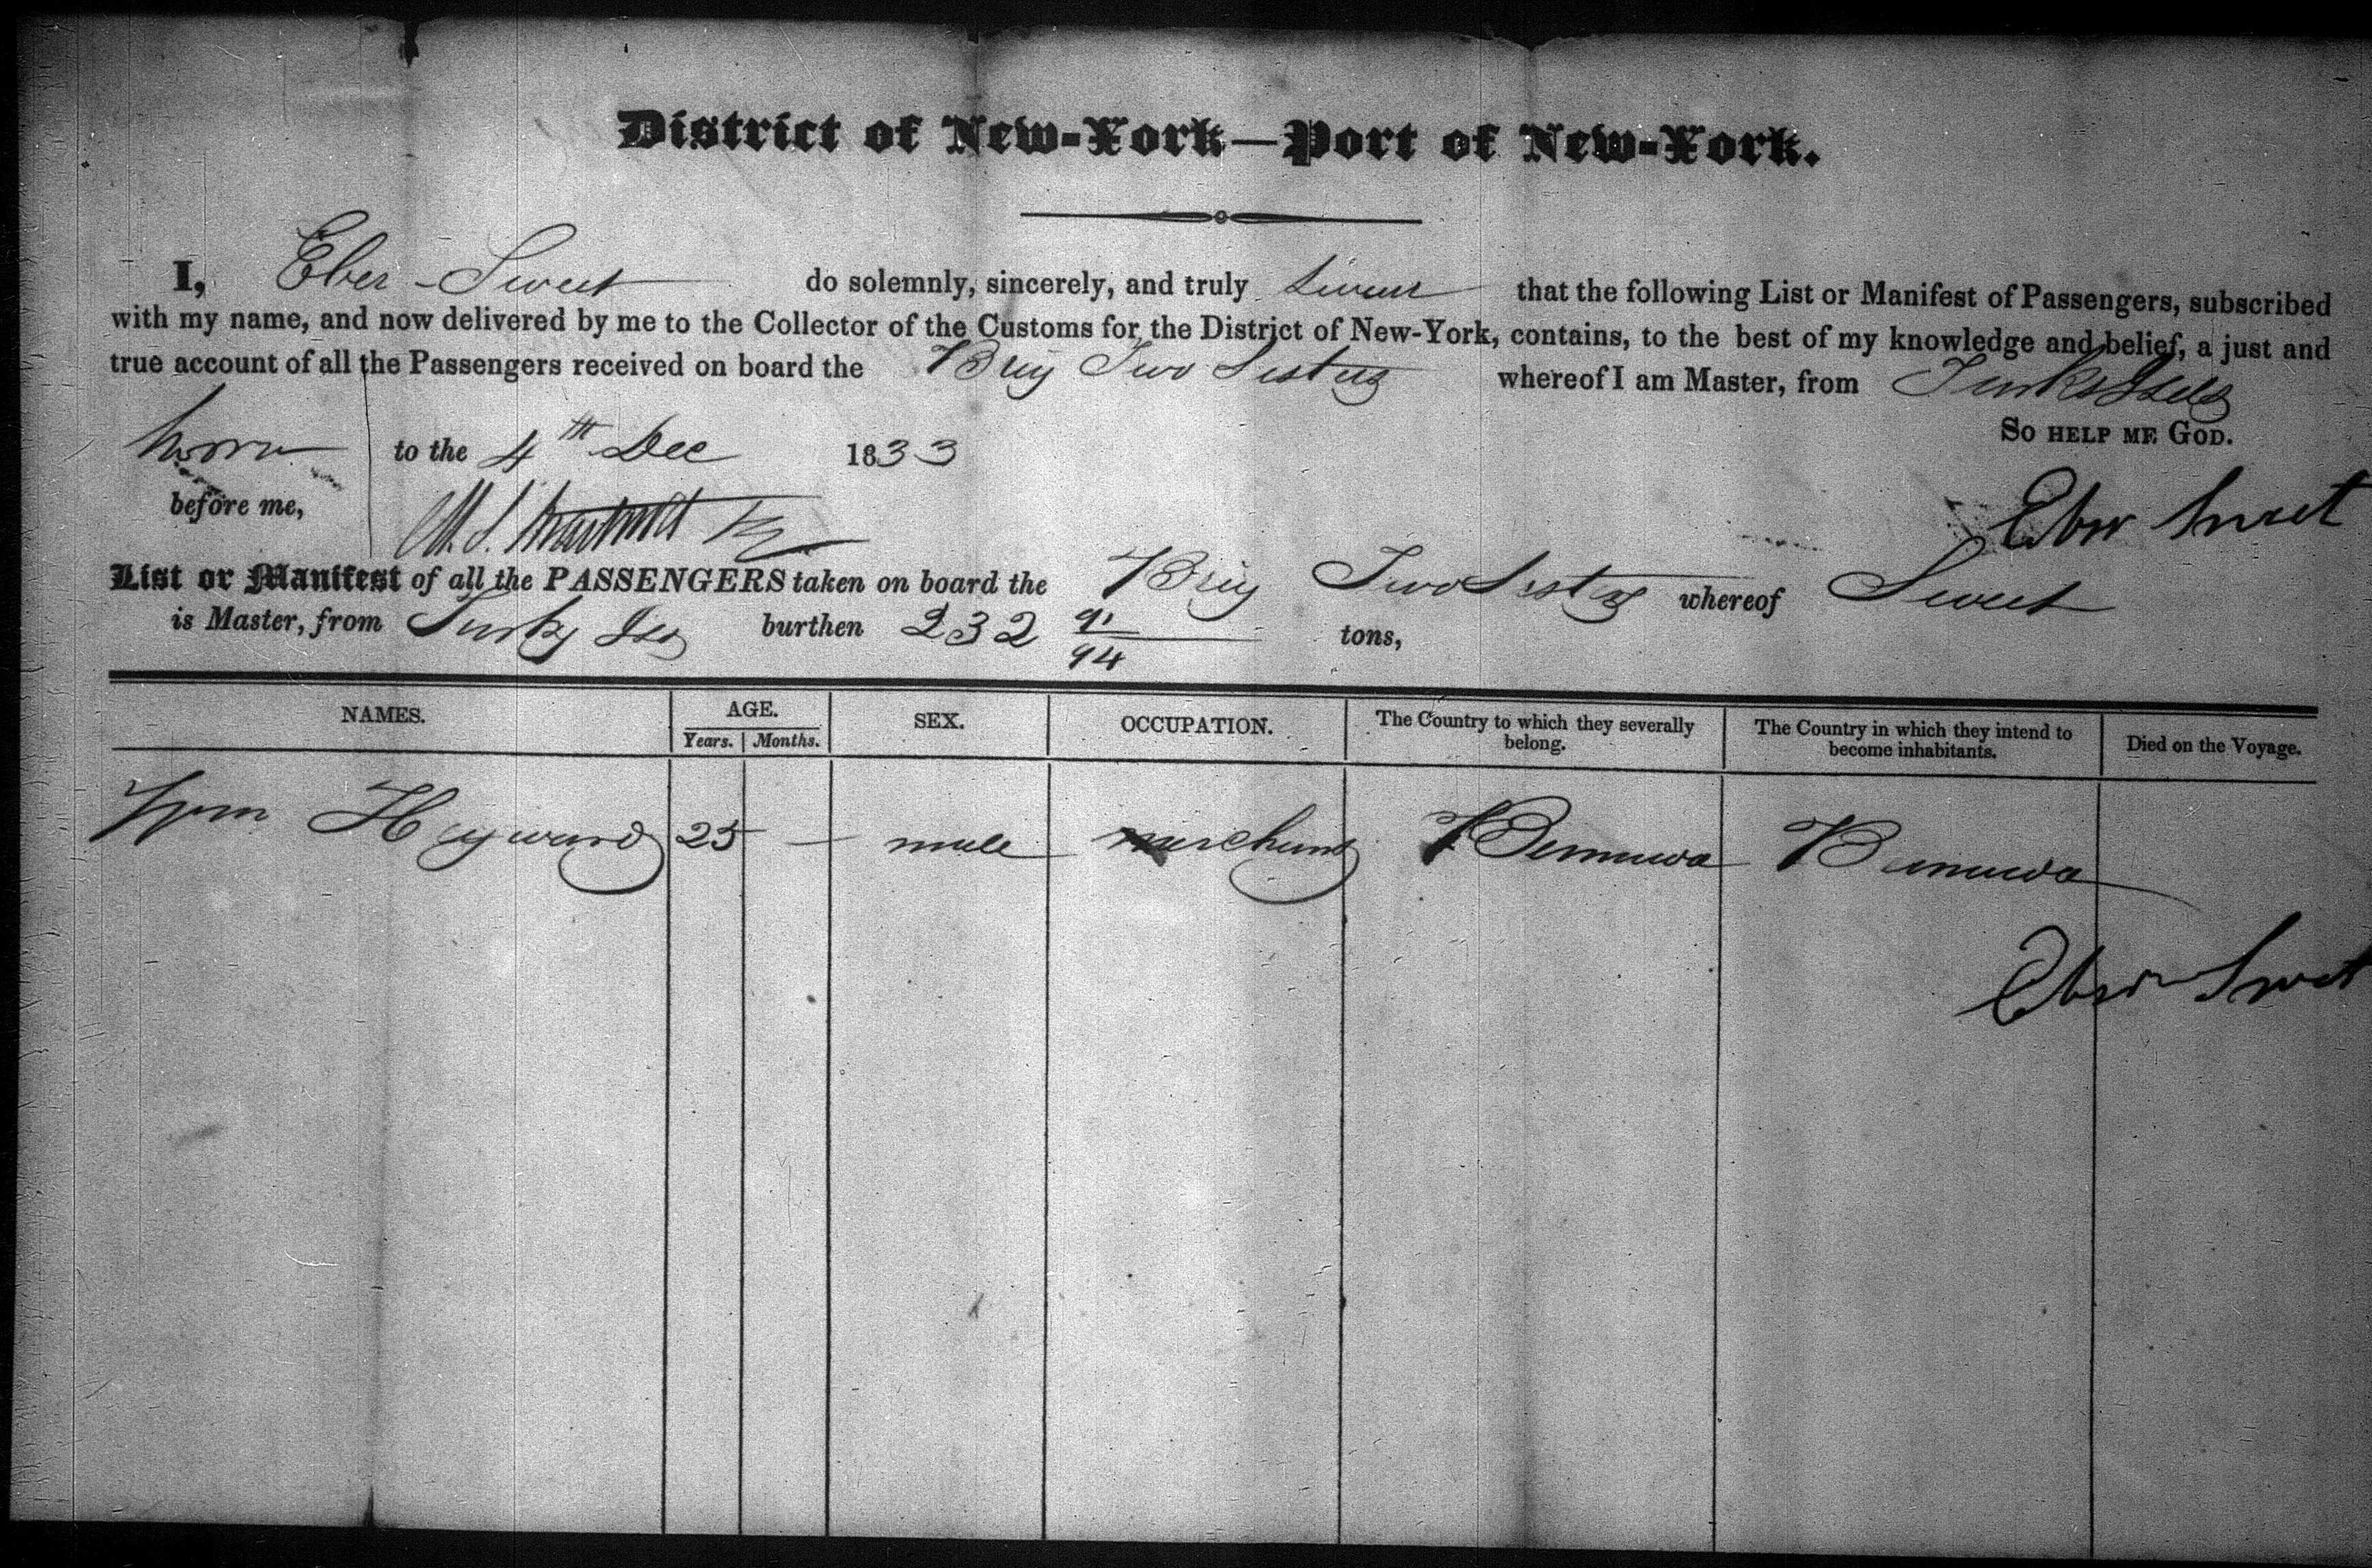 District of New-York—Port of New-York.
I, Eber Sweet do solemnly, sincerely, and truly swear that the following List or Manifest of Passengers, subscribed
with my name, and now delivered by me to the Collector of the Customs for the District of New-York, contains, to the best of my knowledge and belief, a just and
true account of all the Passengers received on board the Brig Two Sisters whereof I am Master, from Turks Islds
So help me God.
Sworn to the 4th Dec 1833
before me,
Eber Sweet
List or Manifest of all the PASSENGERS taken on board the Brig Two Sisters whereof Sweet
is Master, from Turks Isd burthen 232 91/94 tons,
NAMES. AGE. SEX. OCCUPATION. The Country to which they severally belong. The Country in which they intend to become inhabitants. Died on the Voyage.
Years. Months.
Wm Hayward 25 — male merchant Bermuda Bermuda
Eber Sweet